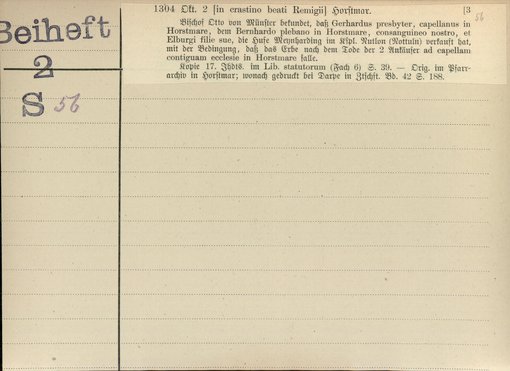 Beiheft
2
S 56
1304 Okt. 2 [in crastino beati Remigii] Horstmar. [3
56
Bischof Otto von Münster bekundet, daß Gerhardus presbyter, capellanus in
Horstmare, dem Bernhardo plebano in Horstmare, consanguineo nostro, et
Elburgi filie sue, die Hufe Meynharding im Kspl. Nutlon (Nottuln) verkauft hat,
mit der Bedingung, daß das Erbe nach dem Tode der 2 Ankäufer ad capellam
contiguam ecclesie in Horstmare falle.
Kopie 17. Jhdts. im Lib. statutorum (Fach 6) S. 39. — Orig. im Pfarr-
archiv in Horstmar; wonach gedruckt bei Darpe in Ztschft. Bd. 42 S. 188.